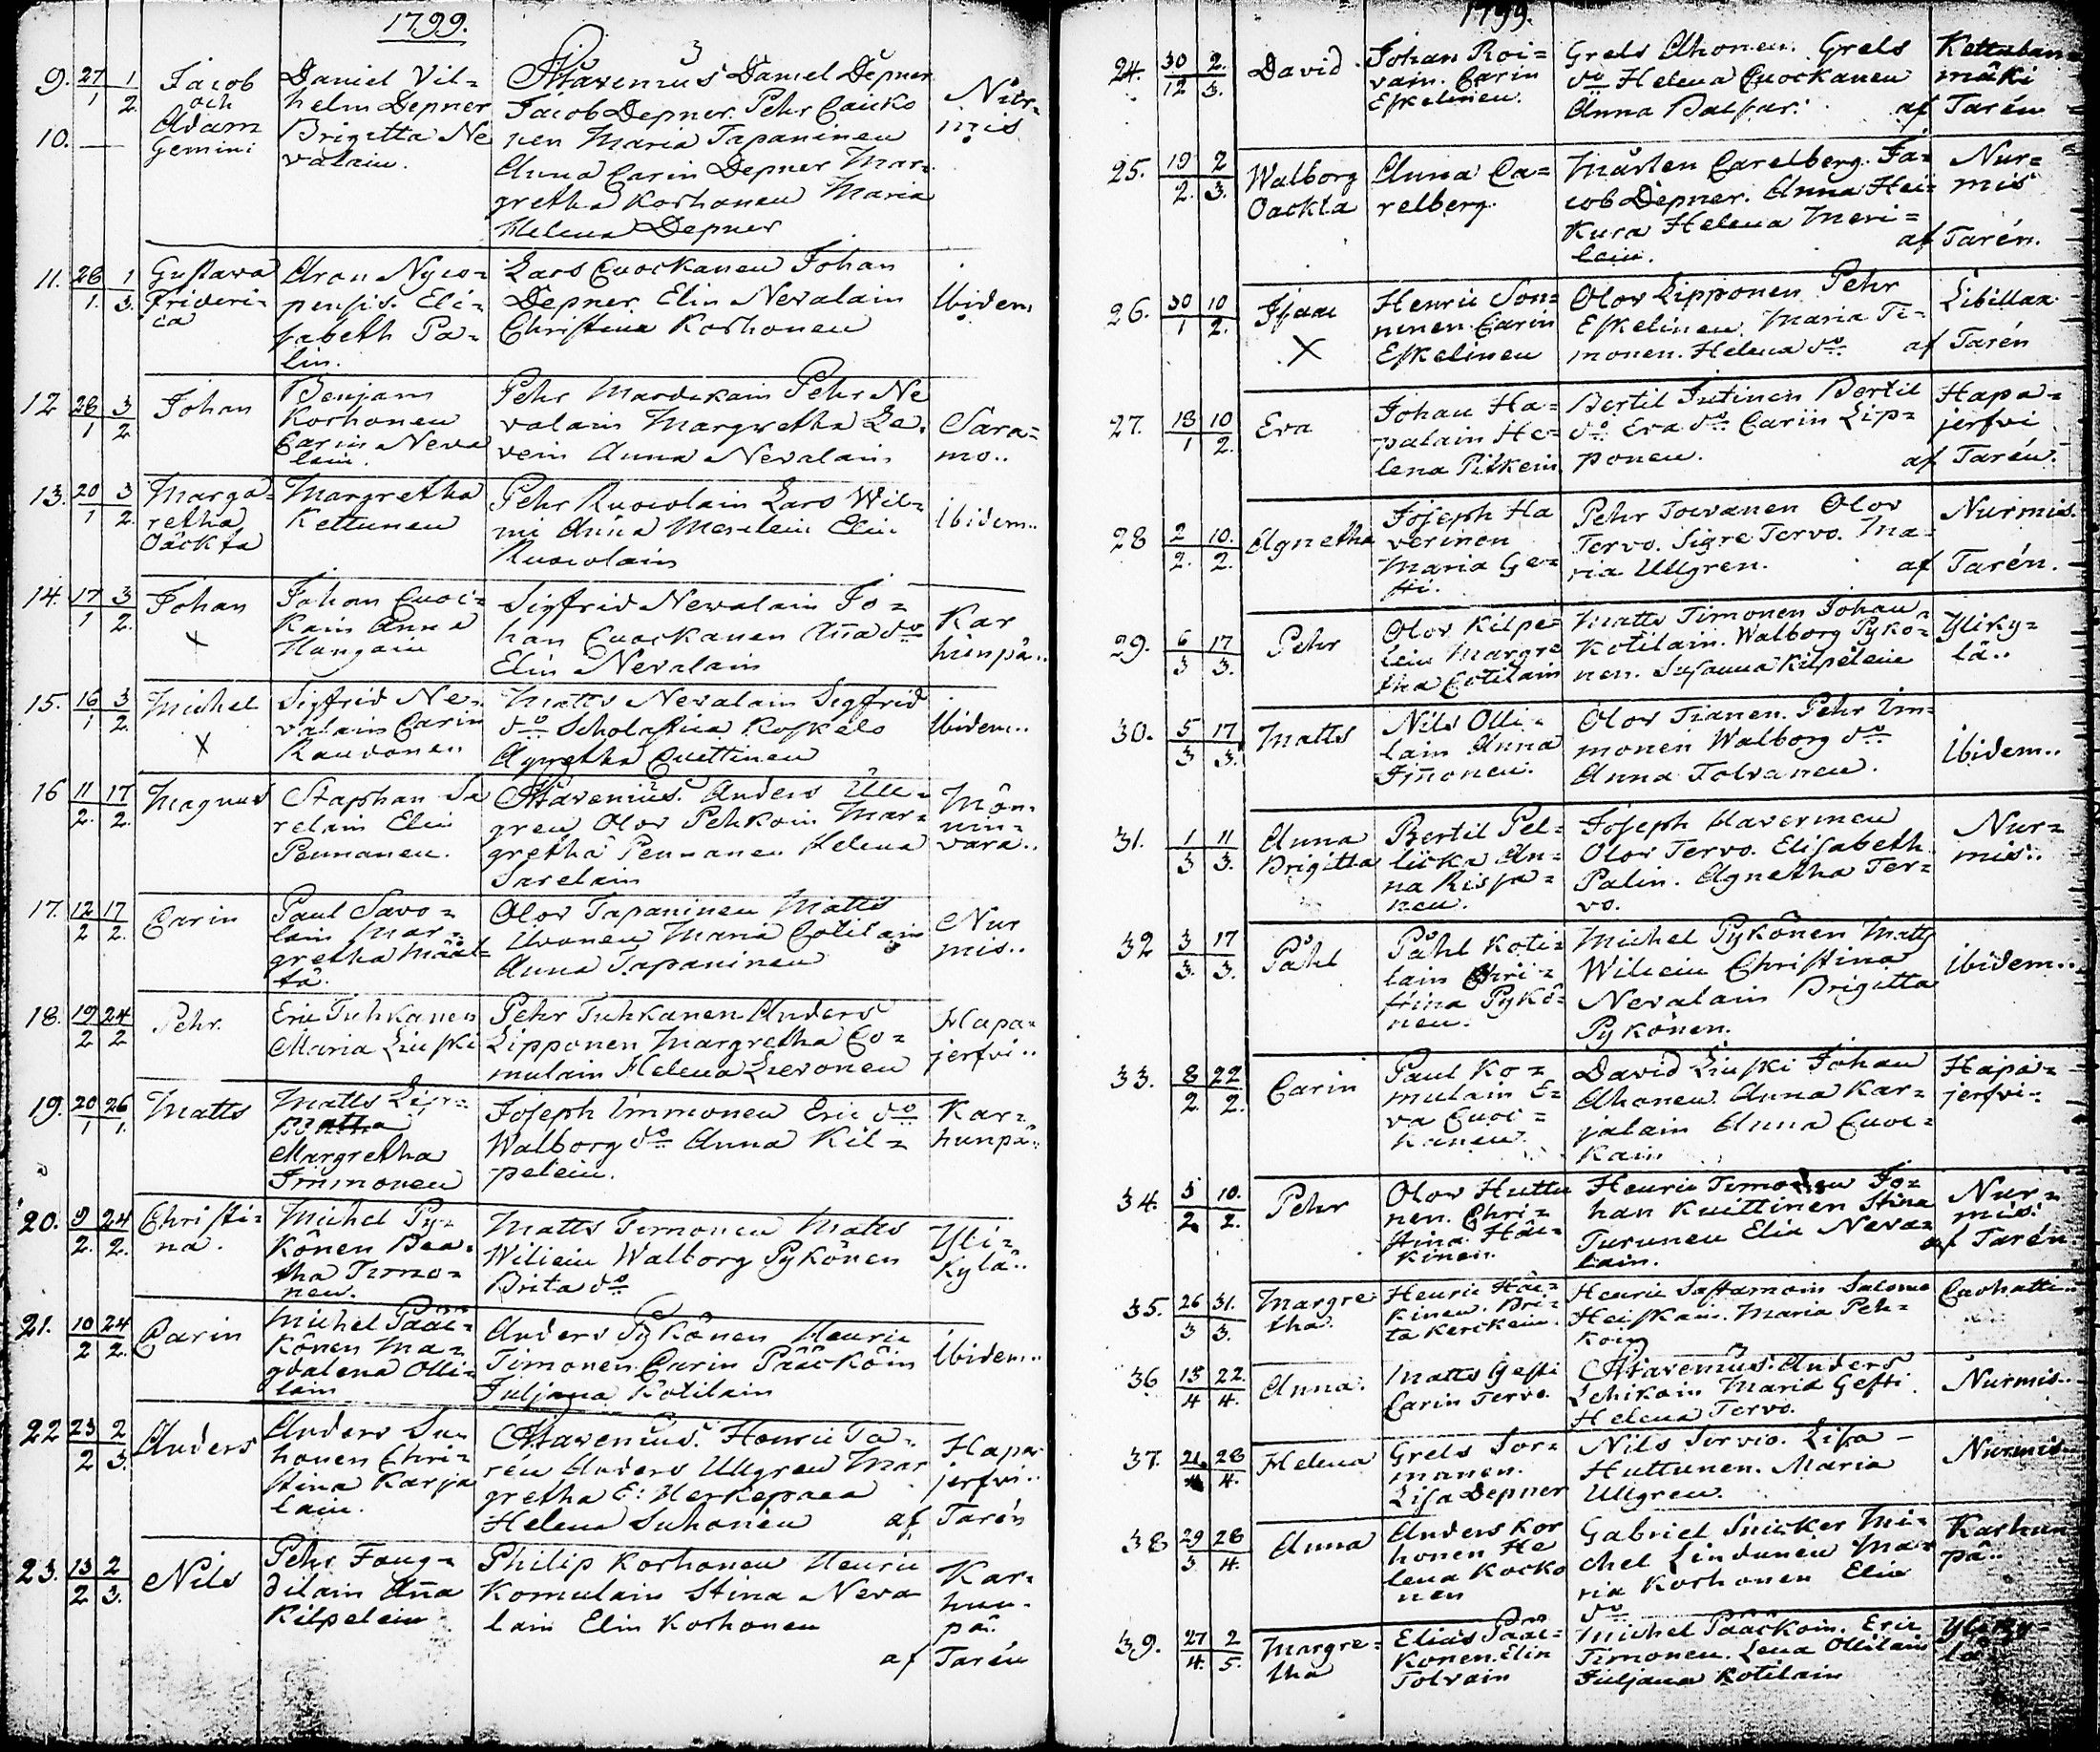 1799.
9. 27/1 1/2 Jacob och Adam Gemini
10. —
Daniel Vil=
helm Depner
Brigitta Ne
valain.
Daniel Depner
Jacob Depner. Pehr Cauko
nen Maria Tapaninen
Anna Carin Depner Mar=
gretha Korhonen Maria
Helena Depner
Nur=
mis
11. 26/1. 1/3. Gustava
Frideri=
cia
Aron Nyco=
pensis. Eli=
sabeth Pa=
lin.
Lars Cuockanen Johan
Depner. Elin Nevalain
Christina Korhonen
Ibidem
12 26/1 3/2 Johan
Benjam
Korhonen
Carin Neva
lain.
Pehr Mardikain Pehr Ne
valain Margretha Le=
vein Anna Nevalain
Sara=
mo..
13. 20/1 3/2. Marga=
retha
Oäckta
Margretha
Kettunen
Pehr Ruocolain Lars Wil=
mi Anna Elin
Ruocolain
Ibidem..
14. 17/1 3/2. Johan
x
Johan Cuoc=
kain Anna
Hangain
Sigfrid Nevalain Jo=
han Cuockanen Aña do
Elin Nevalain
Kar
hunpä..
15. 16/1 3/2. Michel
x
Sigfrid Ne=
valain Carin
Raudonen
Matts Nevalain Sigfrid
do Scholastica Koskelo
Agnetha Cuettinen
Ibidem..
16 11/2. 17/2. Magnus
Staphan Sa
relain Elin
Pennanen.
Anders Ull=
gren Olov Pehkoin Mar=
gretha Pennanen Helena
Sarelain
Mön=
nin=
vara..
17. 12/2 17/2. Carin
Paul Savo=
lain Mar=
gretha Määt=
tä.
Olov Tapaninen Matts
Uvonen Maria Cotilain
Anna Tapaninen
Nur
mis..
18. 19/2 24/2 Pehr.
Eric Tuhkanen
Maria Liuski
Pehr Tuhkanen Anders
Lipponen Margretha Co=
mulain Helena Lievonen
Hapa=
jerfvi..
19. 20/1 26/1. Matts
Matts Lip=
Margretha
Immonen
Joseph Immonen Eric do
Walborg do Anna Kil=
pelein.
Kar=
hunpä..
20. 9/2. 24/2. Christi=
na.
Michel Py=
könen Bea=
tha Timo=
nen.
Matts Timonen Matts
Wiliein Walborg Pykönen
Brita do
Yli=
kylä..
21. 10/2 24/2. Carin
Michel Pääc=
könen Ma=
gdalena Olli=
lain
Anders Pykönen Henric
Timonen Carin Pääcköin
Juljana Kotilain
Ibidem..
22 23/2 2/3. Anders
Anders Su=
honen Chri=
stina Karja
lain.
Henric Ta=
rén Anders Ullgren Mar
gretha E: Herkepaea
Helena Suhonen af
Hapa=
jerfvi..
Tarén
23. 13/2 2/3. Nils
Pehr Foug=
dilain Aña
Kilpelein
Philip Korhonen Henric
Komulain Stina Neva
lain Elin Korhonen
af
Kar=
hun=
pä..
Tarén
1799.
24. 30/12 2./3. David
Johan Roi=
vain. Carin
Eskelinen.
Grels Ahonen. Grels
do Helena Cuockanen
Anna Balsar. af
Kettuban=
mäki
Tarén
25. 19/2. 2/3. Walborg
Oackta
Anna Ca=
relberg.
Mårten Carelberg. Ja=
cob Depner. Anna Hei=
kura Helena Meri=
lein. af
Nur=
mis
Tarén.
26. 30/1 10/2. Isaac
x
Henric Son=
ninen. Carin
Eskelinen
Olov Lipponen Pehr
Eskelinen. Maria Ti=
monen. Helena do. af
Libillax
Tarén
27. 13/1 10/2. Eva
Johan Ha=
palain He=
lena Pitkein
Bertil Jutinen Bertil
do Eva do Cariin Lip=
ponen. af
Hapa=
jerfvi
Tarén.
28 2/2. 10./2. Agnetha
Joseph Ha
verinen
Maria Ge=
sti.
Pehr Toivanen Olov
Tervo. Sigre Tervo. Ma=
ria Ullgren. af
Nurmis.
Tarén.
29. 6/3 17/3. Pehr
Olov Kilpe=
lein Margre
tha Cotilain
Matts Timonen Johan
Kotilain. Walborg Pykö=
nen. Susanna Kilpelein
Yliky=
lä..
30. 5/3 17/3. Matts
Nils Olli=
lain Anna
Im̃onen.
Olov Tianen. Pehr Im=
monen Walborg do
Anna Tolvanen.
Ibidem..
31. 1/3 11/3. Anna
Brigitta
Bertil Pel=
liicka An=
na Rissa=
nen.
Joseph Haverinen
Olov Tervo. Elisabeth
Palin. Agnetha Ter=
vo.
Nur=
mis..
32 3/3. 17/3. Påhl
Påhl Koti=
lain Chri=
stina Pykö=
nen.
Michel Pykönen Matts
Wiliein Christina
Nevalain Brigitta
Pykönen.
Ibidem..
33. 8/2. 22/2. Carin
Paul Ko=
mulain E=
va Cuoc=
kanen.
David Liuski Johan
Ahonen Anna Kar=
jalain Anna Cuoc=
kain
Hapa=
jerfvi..
34. 3/2 10./2. Pehr
Olov Huttu
nen. Chri=
stina Häi=
kinen.
Henric Timonen Jo=
han Kuittinen Stina
Turunen Elin Neva=
lain. af
Nur=
mis.
Tarén.
35. 26/3 31./3. Margre
tha.
Henric Häi=
kinen. Bri=
ta Kerckein.
Henric Sastamoin Salome
Heiskain. Maria Peh=
koin
36 15/4 22./4. Anna.
Matts Gesti
Carin Tervo.
Anders
Lehikoin Maria Gesti
Helena Tervo.
Nurmis..
37. 21./4 28/4. Helena
Grels Sor=
manen.
Lisa Depner
Nils Servio. Lisa —
Huttunen. Maria
Ullgren.
Nurmis..
38 29/3 28/4. Anna
Anders Kor
honen He
lena Kocko
nen
Gabriel Snicker Mi=
chel Lindunen Ma=
ria Korhonen Elin
do
Karhun
pä..
39. 27/4. 2/5. Margre=
tha
Elias Pääc=
konen. Elin
Tolvain
Michel Pääckoin. Eric
Timonen. Lena Ollilain
Juljana Kotilain
Yliky=
lä